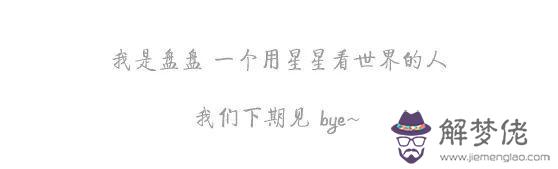 我是盘盘 一个用星星看世界的人
我们下期见 bye~
解梦佬
www.jiemenglao.com